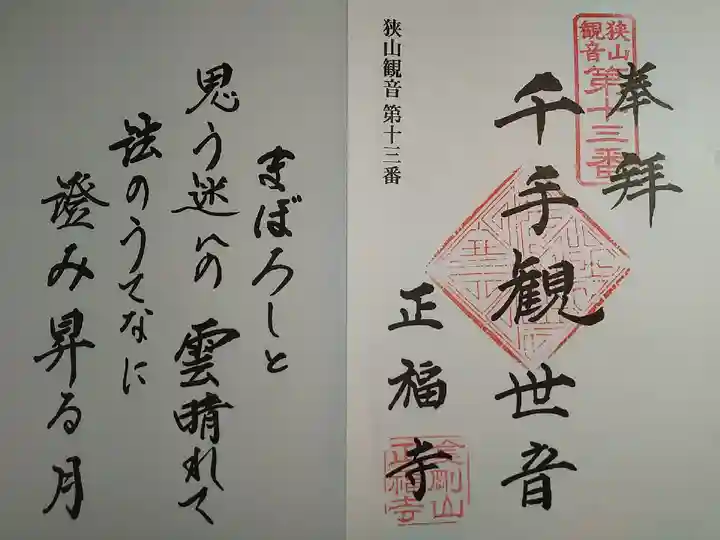 狭山
観音
第十三番
奉拝
千手観世音
正福寺
金剛山
正福寺
狭山観音 第十三番
まぼろしと
思う迷いの 雲晴れて
法のうてなに
澄み昇る月